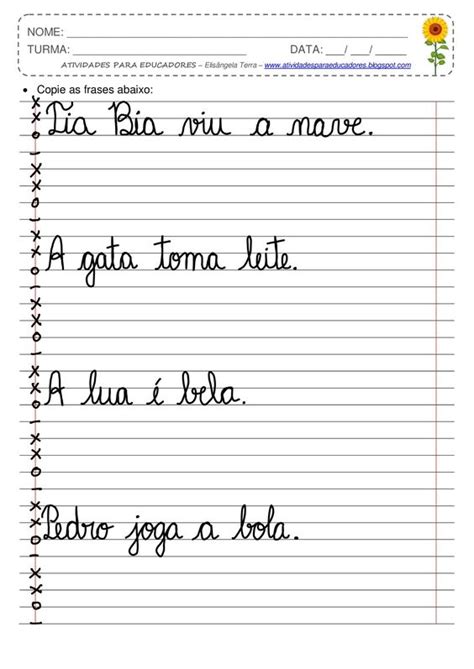 NOME: ______________________________
TURMA: ______________________ DATA: ___/ ___/ _____
ATIVIDADES PARA EDUCADORES – Elisângela Terra – www.atividadesparaeducadores.blogspot.com
• Copie as frases abaixo:
Tia Bia viu a nave.
A gata toma leite.
A lua é bela.
Pedro joga a bola.